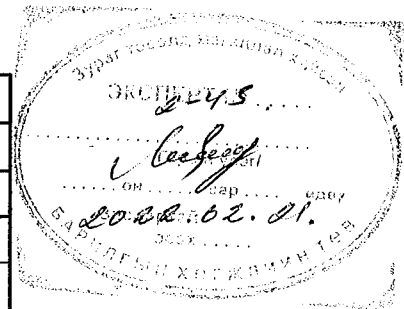 Зураг төсөлд магадлал хийсэн
ЭКСПЕРТ
2-45
он ..... сар ..... өдөр
2022.02.01.
БАРИЛГЫН ХӨГЖЛИЙН ТӨВ